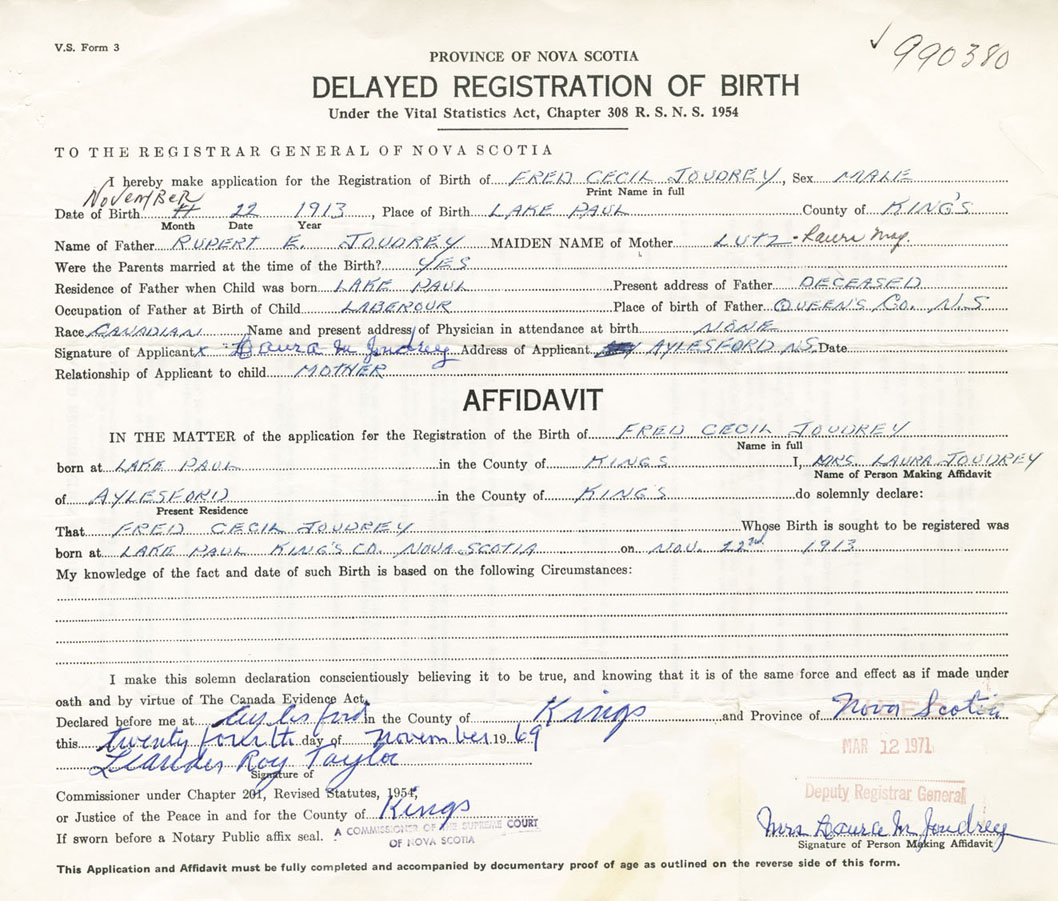 V.S. Form 3
990380
PROVINCE OF NOVA SCOTIA
DELAYED REGISTRATION OF BIRTH
Under the Vital Statistics Act, Chapter 308 R. S. N. S. 1954
TO THE REGISTRAR GENERAL OF NOVA SCOTIA
I hereby make application for the Registration of Birth of FRED CECIL JOUDREY, Sex MALE
Print Name in full
November
Date of Birth 22 1913, Place of Birth LAKE PAUL County of KING'S
Month Date Year
Name of Father RUPERT E. JOUDREY MAIDEN NAME of Mother LUTZ - Laura May.
Were the Parents married at the time of the Birth? YES
Residence of Father when Child was born LAKE PAUL Present address of Father DECEASED
Occupation of Father at Birth of Child LABEROUR Place of birth of Father QUEEN'S CO. N.S
Race CANADIAN Name and present address of Physician in attendance at birth NONE
Signature of Applicant x Laura M Joudrey Address of Applicant AYLESFORD N.S. Date
Relationship of Applicant to child MOTHER
AFFIDAVIT
IN THE MATTER of the application for the Registration of the Birth of FRED CECIL JOUDREY
Name in full
born at LAKE PAUL in the County of KINGS I, MRS. LAURA JOUDREY
Name of Person Making Affidavit
of AYLESFORD in the County of KING'S do solemnly declare:
Present Residence
That FRED CECIL JOUDREY Whose Birth is sought to be registered was
born at LAKE PAUL KING'S CO. NOVA SCOTIA on NOV. 22nd 1913
My knowledge of the fact and date of such Birth is based on the following Circumstances:
I make this solemn declaration conscientiously believing it to be true, and knowing that it is of the same force and effect as if made under
oath and by virtue of The Canada Evidence Act.
Declared before me at Aylesford in the County of Kings and Province of Nova Scotia
this twenty fourth day of November 1969
MAR 12 1971
Leander Roy Taylor
Signature of
Deputy Registrar General
Commissioner under Chapter 201, Revised Statutes, 1954,
or Justice of the Peace in and for the County of Kings
Mrs Laura M Joudrey
If sworn before a Notary Public affix seal. A COMMISSIONER OF THE SUPREME COURT
OF NOVA SCOTIA
Signature of Person Making Affidavit
This Application and Affidavit must be fully completed and accompanied by documentary proof of age as outlined on the reverse side of this form.